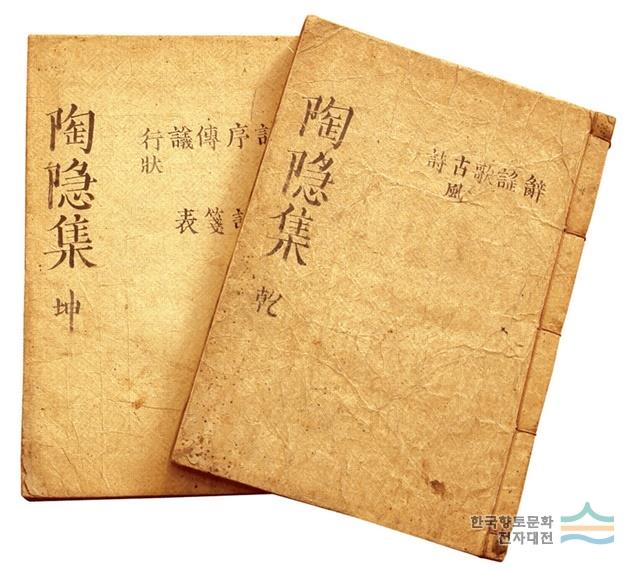 辭謠歌古風詩
陶隐集
乾
序傳議行狀
箋表
陶隐集
坤
한국향토문화
전자대전